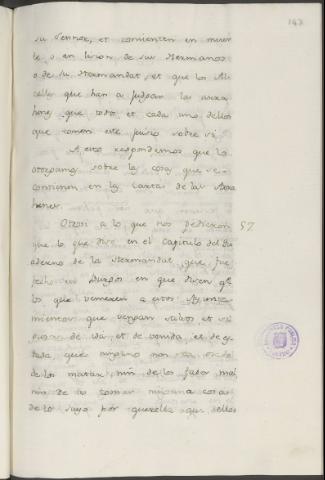 143
su Sennor, et comienten en muer
te o en lision de sus Hermanos
o de su Hermandat, et que los Al
calles que han a judgar las
que todos et cada uno dellos
que tomen este juicio sobre si.
A esto respondemos que lo
otorgamos sobre las cosas que se
contienen en la carta de la
Otrosi a lo que nos pedieron 57
que lo que dise en el Capitulo del Qu
aderno de la Hermandat, que fue
fecho en Burgos en que disen qe
los que venieren a estos Ayunta
mientos que vengan salvos et se
guros de ida et de venida et de es
tada, que ninguno non sea osado
de los matar, nin de los faser mal
nin de les tomar ninguna cosa
de lo suyo por querella que dellos